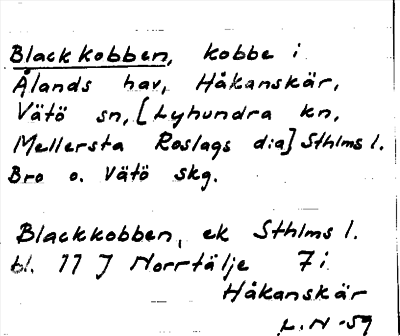 Blackkobben, kobbe i
Ålands hav, Håkanskär,
Vätö sn, [Lyhundra kn,
Mellersta Roslags d:a] Sthlms l.
Bro o. Vätö skg.
Blackkobben, ek Sthlms l.
bl. 77 J Norrtälje 7 i
Håkanskär
L.N -59